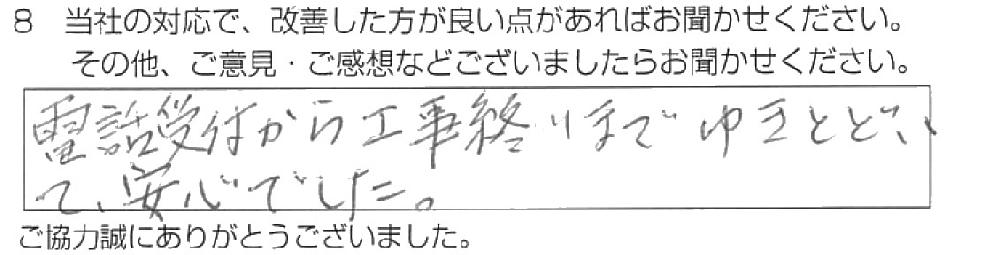 8 当社の対応で、改善した方が良い点があればお聞かせください。
その他、ご意見・ご感想などございましたらお聞かせください。
電話受付から工事終りまでゆきとどい
て、安心でした。
ご協力誠にありがとうございました。